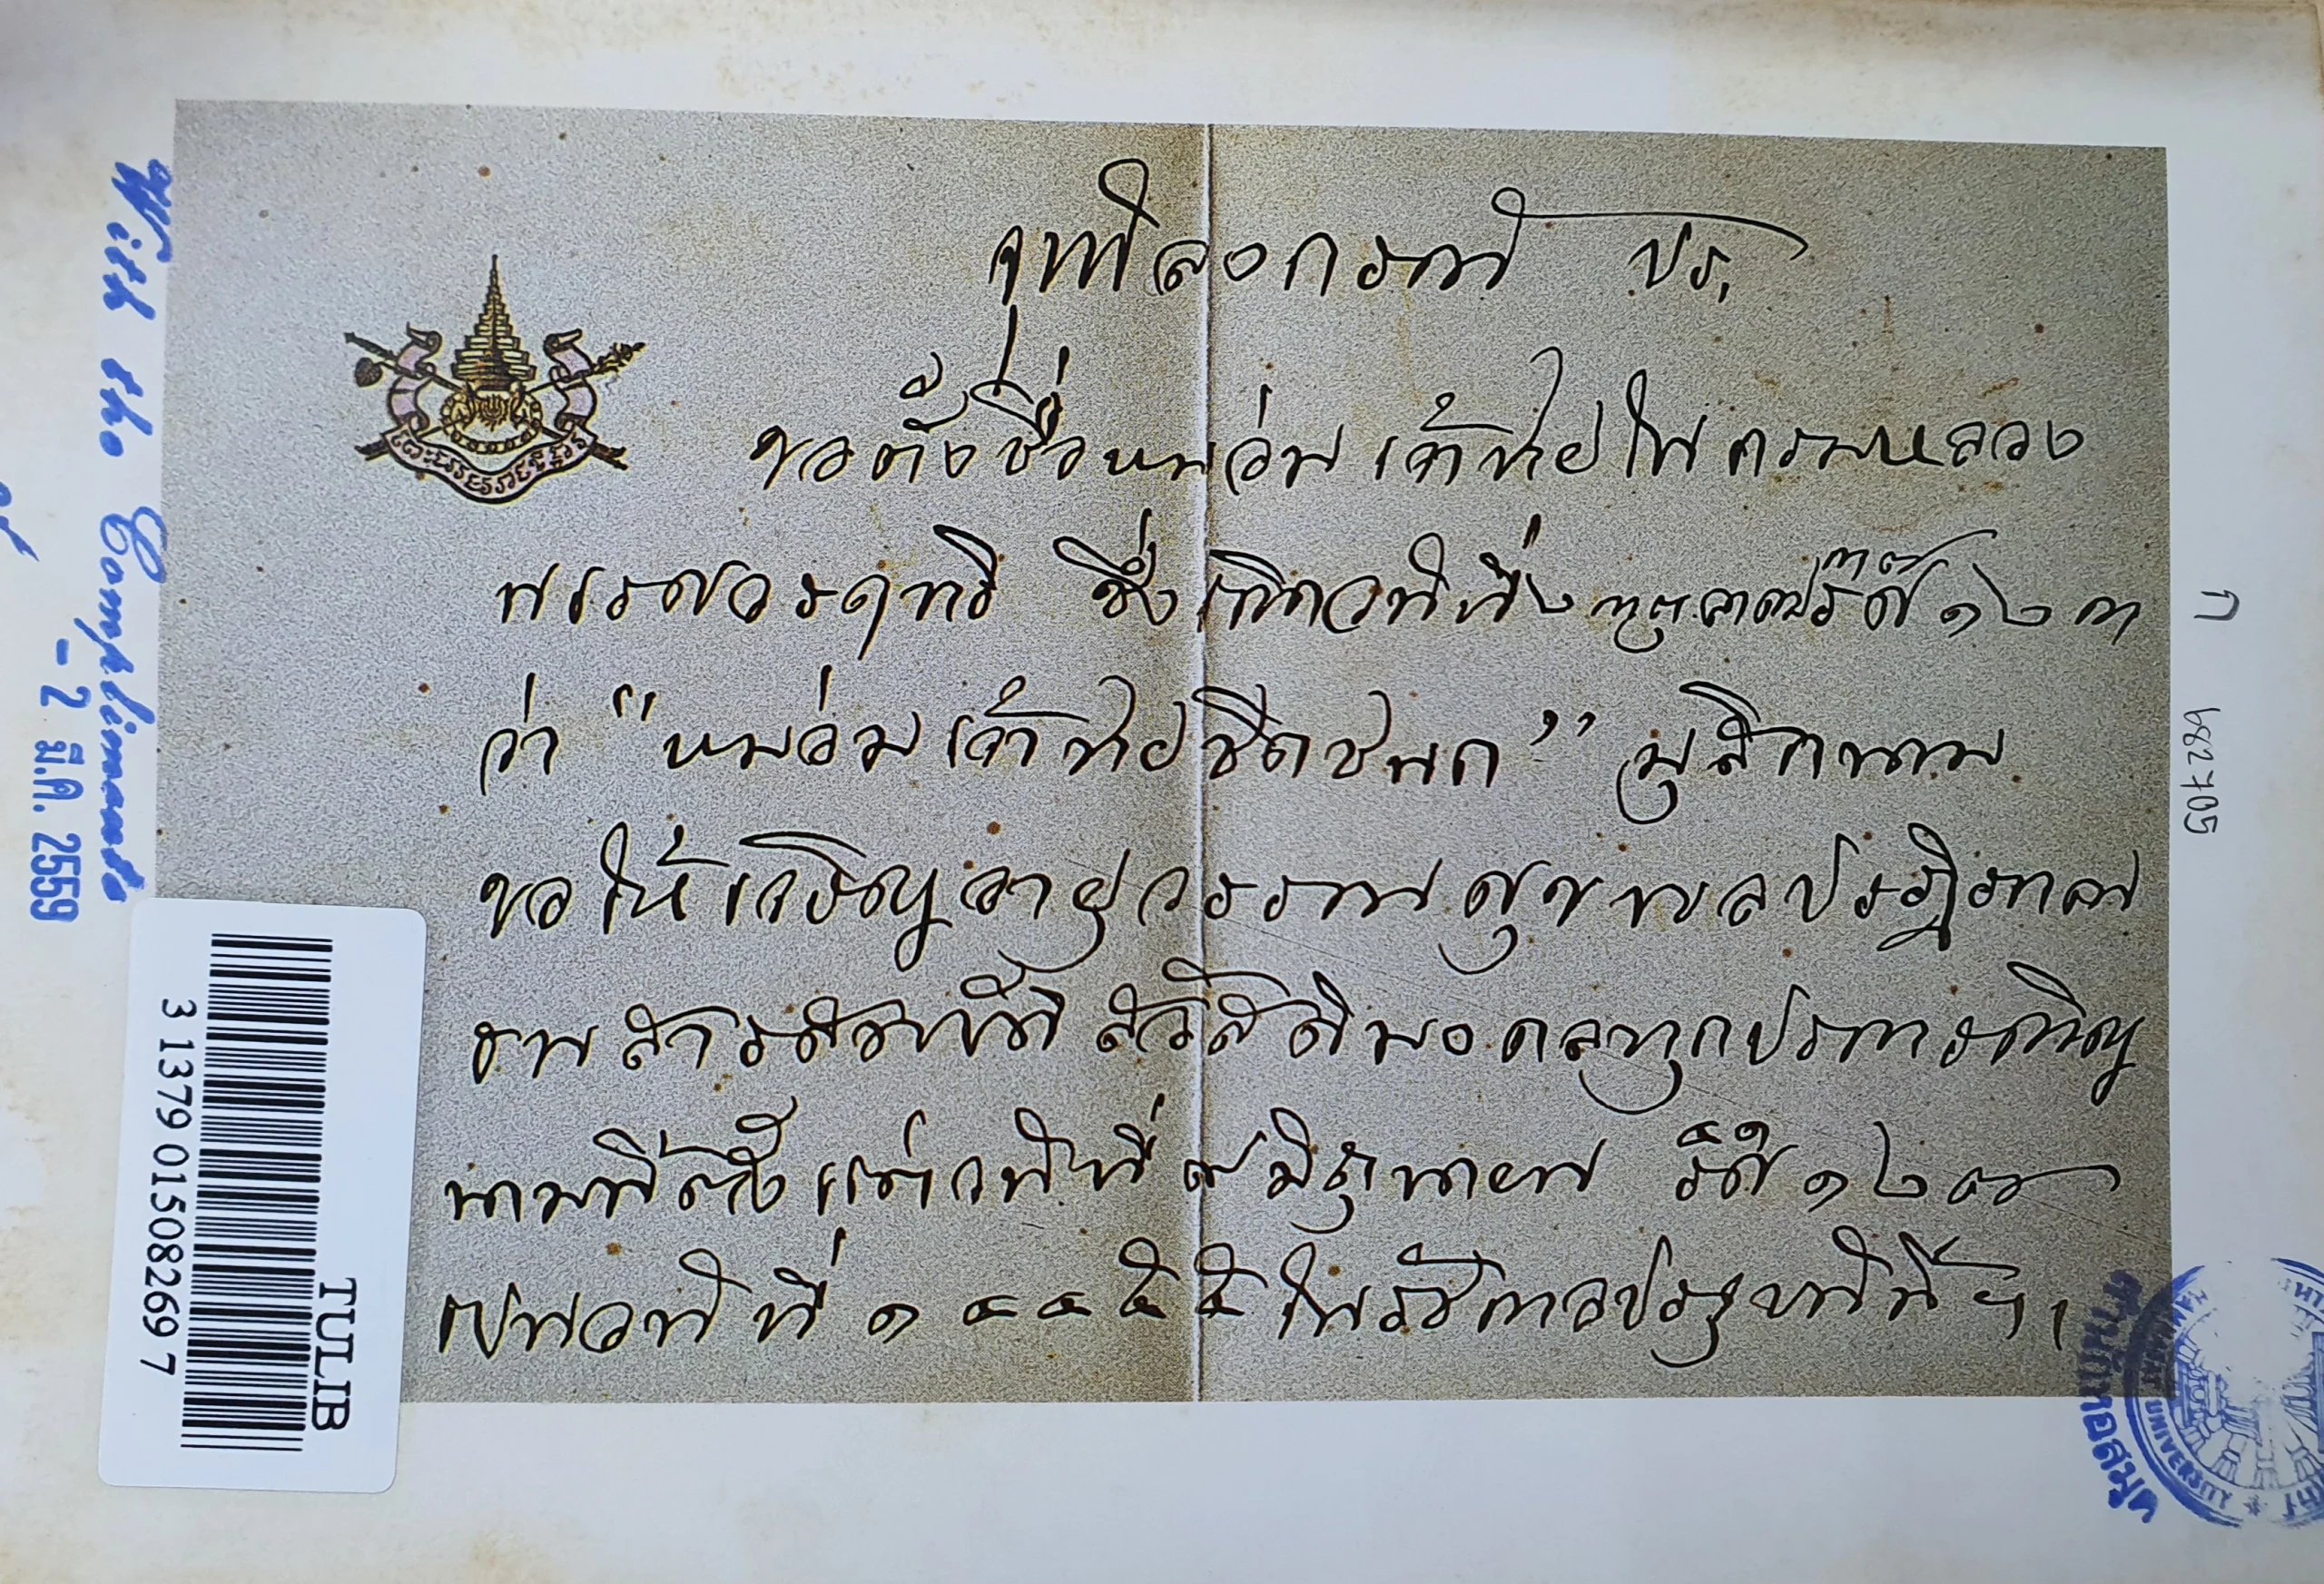 จุฬาลงกรณ์ ปร,
ขอตั้งชื่อหม่อมเจ้าชายในกรมหลวง
ซึ่งเกิดวันที่ ๑๒๓
ว่า "หม่อมเจ้าชายชิดชนก" มุสิกนาม
ขอให้เจริญอายุวรรณศุขพลปฏิภาณ
ธนสารสมบัติสวัสดิมงคลทุกประการเทิญ
นามที่ตั้งแต่วันที่ มิถุนายน ๑๒
เปนวันที่ ๑๔๔๕๕ ในรัชกาลประจุบันนี้ฯ,
With the Compliments
- 2 มี.ค. 2559
3 1379 01508269 7
TULIB
ก
682705
สำนักหอสมุด
UNIVERSITY